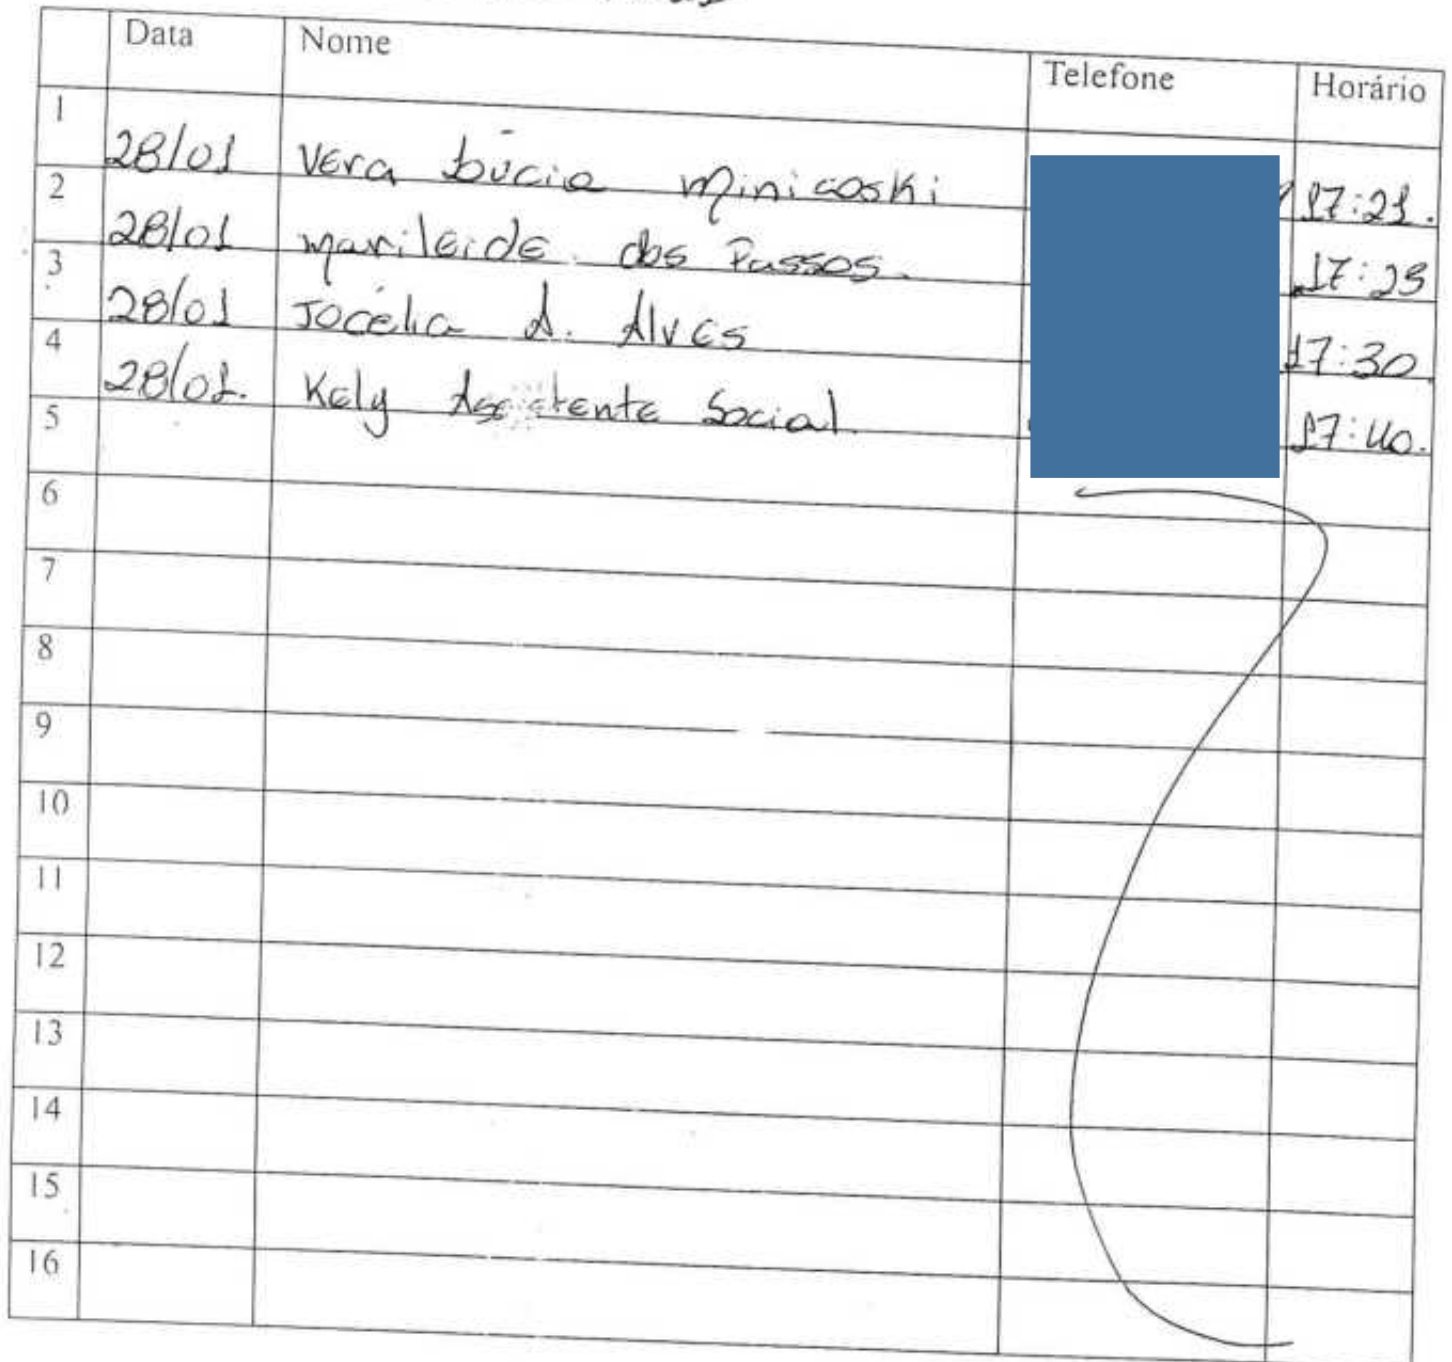 Data Nome Telefone Horário
1 28/01 Vera Lúcia Minicoski 17:21.
2 28/01 Marileide dos Passos. 17:25
3 28/01 Jocélia A. Alves 17:30.
4 28/01. Kely Assistente Social. 17:40.
5
6
7
8
9
10
11
12
13
14
15
16